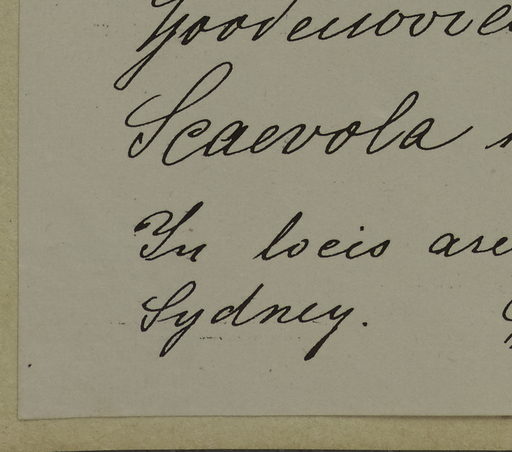 Goodenovie
Scaevola
In locis are
Sydney.